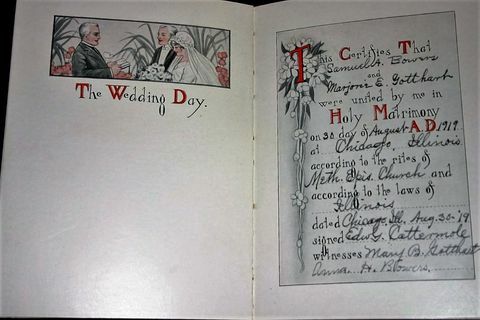 The Wedding Day.
This Certifies That
Samuel A. Bowers
and
Marjorie E. Gotthart
were united by me in
Holy Matrimony
on 30 day of August A.D. 1919
at Chicago, Illinois
according to the rites of
Meth. Epis. Church and
according to the laws of
Illinois
dated Chicago, Ill. Aug. 30-'19
signed Edw. G. Cattermole
witnesses Mary B. Gotthart
Anna H. Blowers.